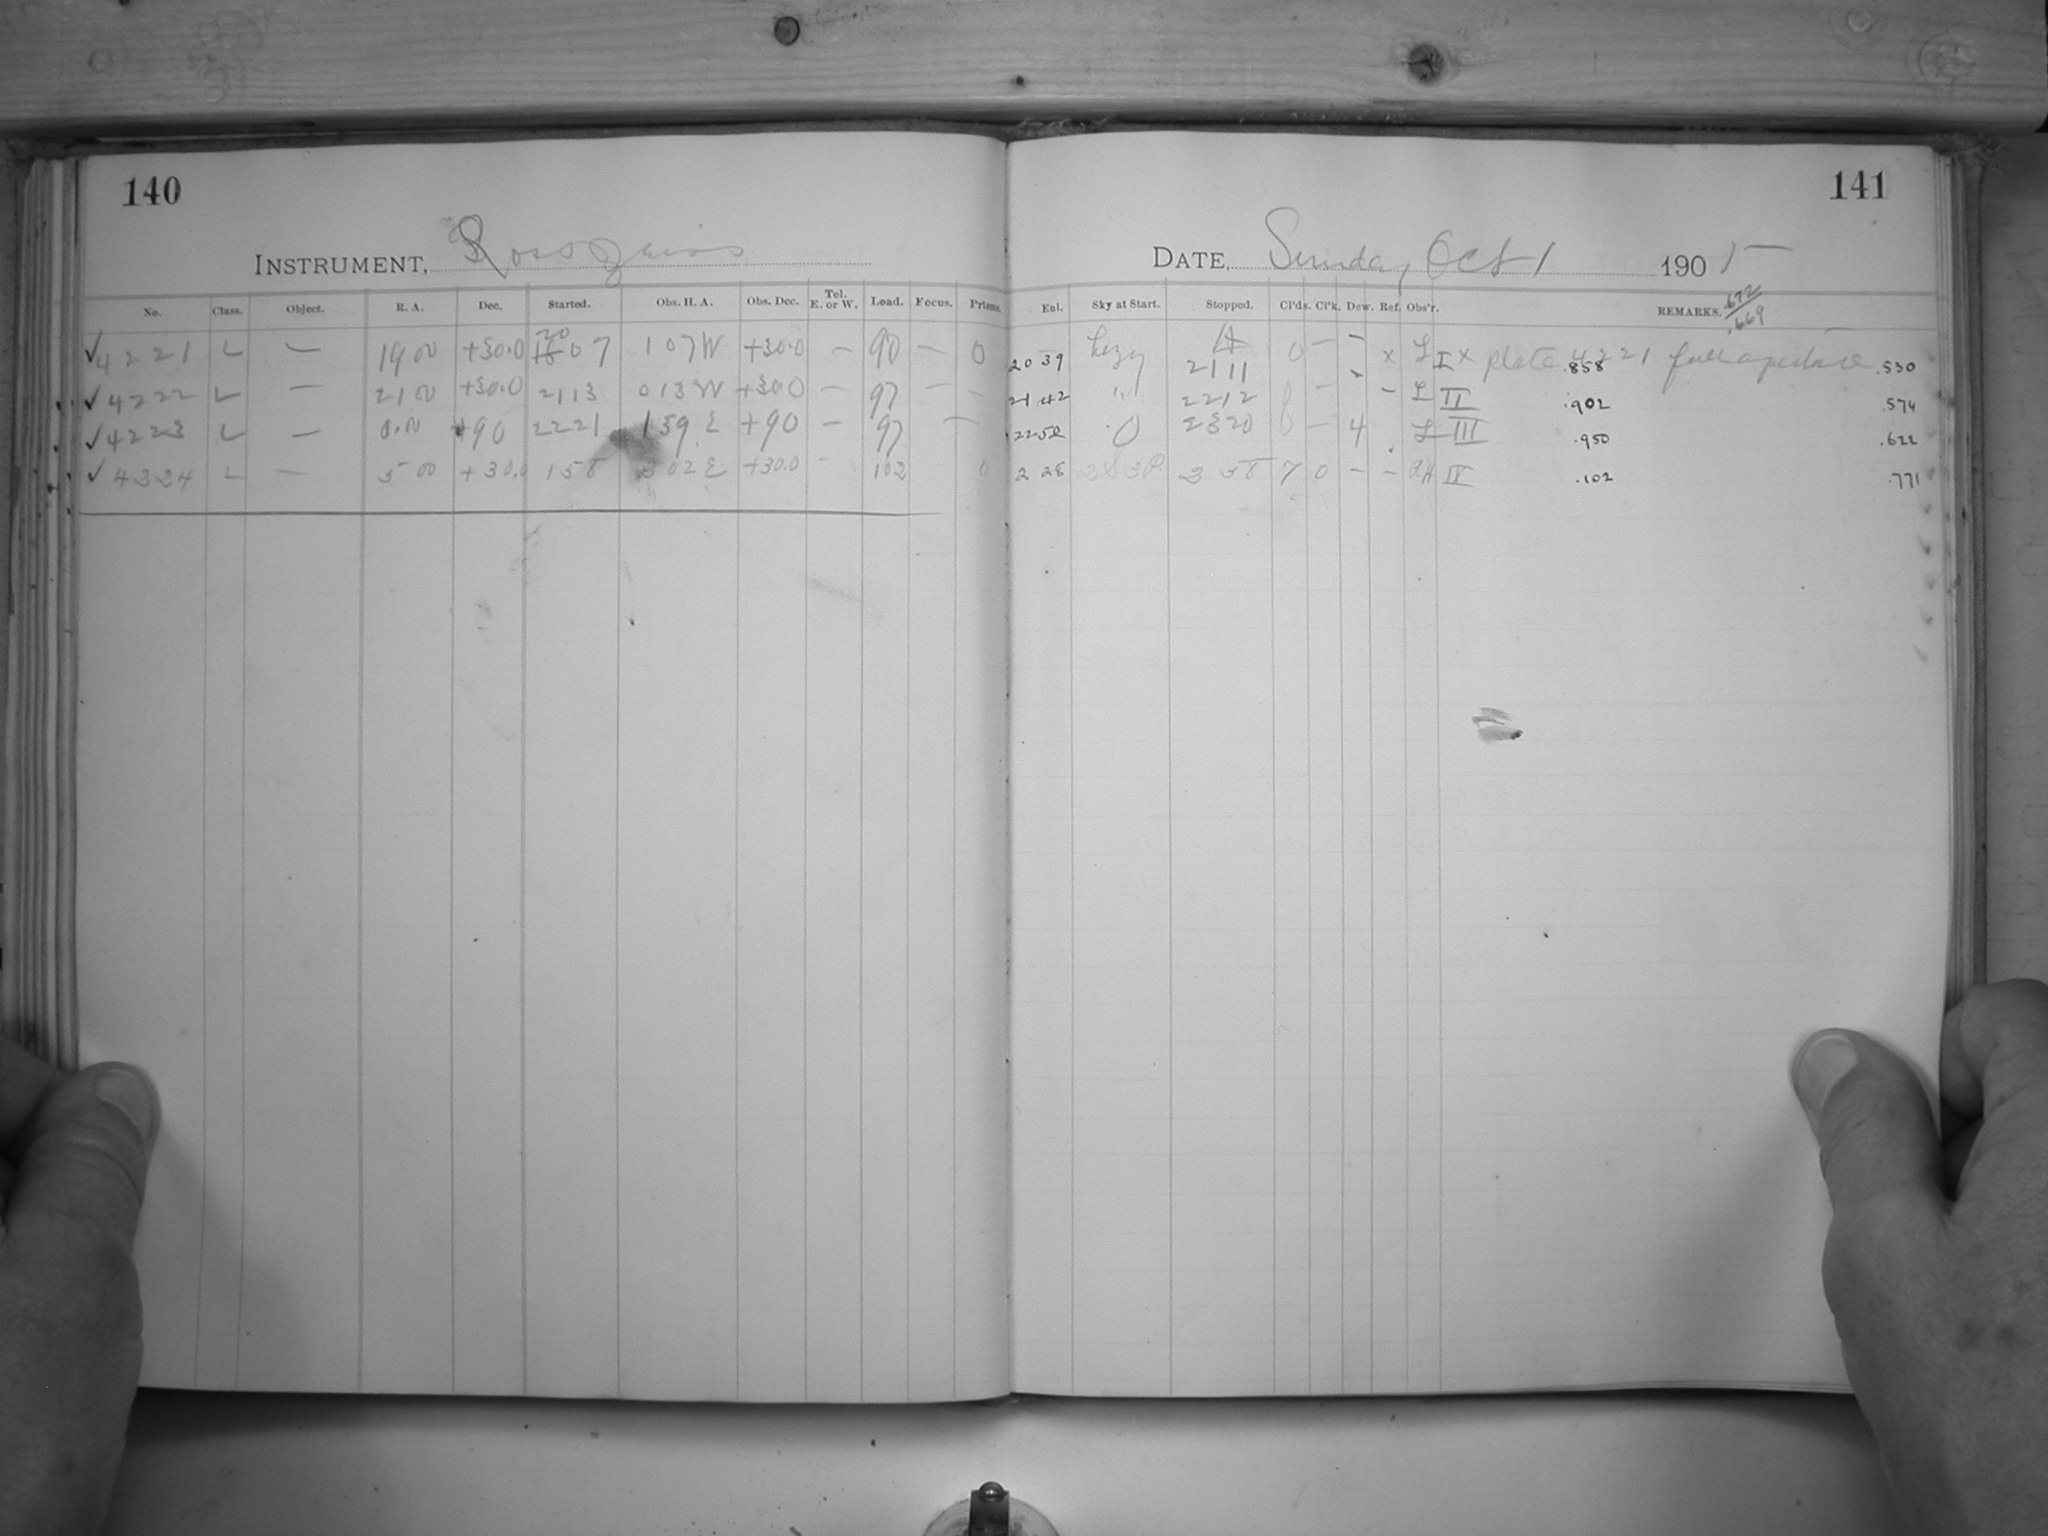 140
INSTRUMENT, Ross Zeiss
No. Class. Object. R. A. Dec. Started. Obs. H. A. Obs. Dec. Tel. E. or W. Lead. Focus. Prisms.
✓4221 L — 19 00 +30.0 20 07 1 07 W +30.0 — 90 — 0
✓4222 L — 21 00 +30.0 21 13 0 13 W +30.0 — 97 — —
✓4223 L — 0.00 +90 22 21 1 39 E +90 — 97 —
✓4224 L — 5 00 +30.0 1 58 3 02 E +30.0 — 102 0
141
DATE, Sunday Oct 1 1905
Enl. Sky at Start. Stopped. Cl'ds. Cl'k. Dew. Ref. Obs'r. REMARKS. .672 .669
20 39 hazy 21 11 0 — — x L I x plate 4221 full aperture .858 .530
21 42 " 22 12 0 — - – L II .902 .574
22 50 0 23 20 0 — 4 . L III .950 .622
2 28 2 58 7 0 – – IV .102 .771